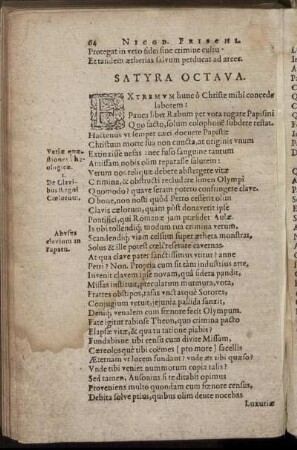 64 NICOD. FRISCHL.
Protegat in vero fidei sine crimine cultu.
Et tandem ætherias salvum perducat ad arces.
SATYRA OCTAVA.
EXTREMVM hunc ô Christe mihi concede
laborem:
Pauca libet Rabum per vota rogare Papistini
Quo facto, solum colophonē subdere restat.
Hactenus vt semper cæci docuere Papistæ
Christum morte sua non cuncta, at originis vnum
Extinxisse nefas: nec fuso sanguine tantum
Amissam nobis olim reputasse salutem:
Verum nos reliquæ debere abstergere vitæ
Crimina, & obstructi recludere limen Olympi
Quomodo? quave seram potero confringere clave.
O bone, non nosti quòd Petro cessent olim
Clavis cælorum, quam pòst donaverit ipse
Pontifici, qui Romanæ jam præsidet Aulæ.
Is tibi tollendi, modum tua crimina verum,
Scandendiq; viam celsum super æthera monstrat,
Solus & ille potest cœli reserare cavernas.
At qua clave pater sanctissimus vtitur? anne
Petri? Non. Propria cum sit tam industrius arte,
Invenit clavem ipse novam, qua sidera pandit,
Missas instituit, precularum murmura, vota,
Fratres obstipos, rasas vnctasque Sorores,
Conjugium vetuit, jejunia passim sanxit,
Deniq; venalem cum fœnore fecit Olympum.
Fare igitur rabiose Theon, quo crimina pacto
Elapsæ vitæ, & quavis ratione piabis?
Fundabisne tibi censu cum divite Missam,
Cæreolosque tibi coëmes (pro more) sacellis
Æternam vt lorem fundant? vnde æs tibi quæso?
Vnde tibi veniet nummorum copia talis?
Sed tamen, Ausonius si te ditabit opimus
Proveniens multo quondam cum fœnore census,
Debita solve prius, quibus olim deute nocebas
Luxuriæ
Variæ quæstiones theologicæ.
1.
De Clavibus regni Cœlorum.
Abusus clavium in Papatu.